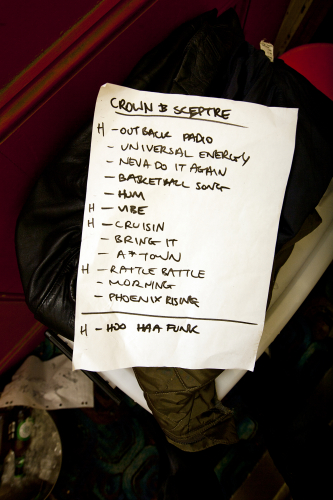 CROWN & SCEPTRE
H - OUTBACK RADIO
- UNIVERSAL ENERGY
- NEVA DO IT AGAIN
- BASKETBALL SONG
- HUM
H - VIBE
H - CRUISIN
- BRING IT
- A* TOWN
H - RATTLE BATTLE
- MORNING
- PHOENIX RISING
H - HOO HAA FUNK